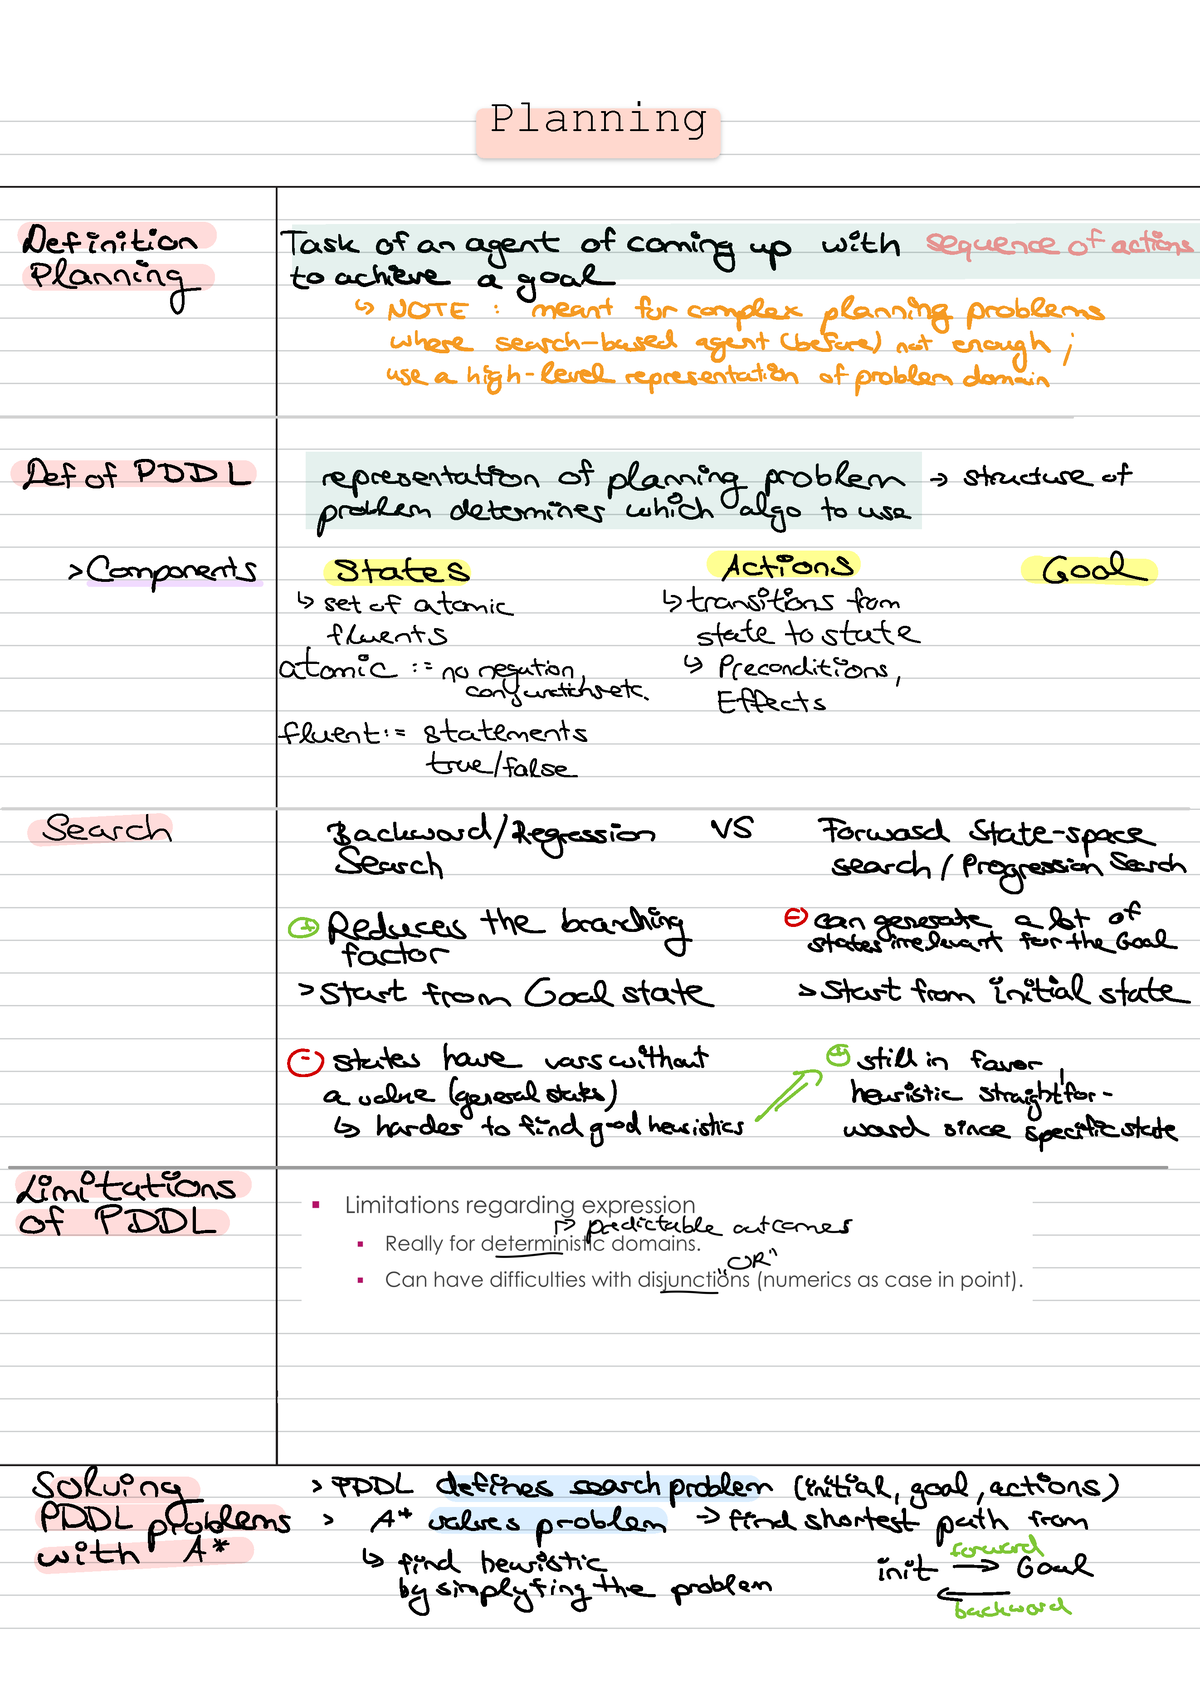 Planning
Definition
Planning
Task of an agent of coming up with sequence of actions
to achieve a goal
↳ NOTE : meant for complex planning problems
where search-based agent (before) not enough ;
use a high-level representation of problem domain
Def of PDDL
representation of planning problem → structure of
problem determines which algo to use
> Components
States
↳ set of atomic
fluents
atomic := no negation,
conjunctions etc.
fluent := statements
true/false
Actions
↳ transitions from
state to state
↳ Preconditions,
Effects
Goal
Search
Backward/Regression
Search
VS
Forward State-space
search / Progression Search
⊕ Reduces the branching
factor
> Start from Goal state
⊖ states have vars without
a value (general states)
↳ harder to find good heuristics
⊖ can generate a lot of
states irrelevant for the Goal
> Start from initial state
⊕ still in favor,
heuristic straightfor-
ward since specific state
Limitations
of PDDL
▪ Limitations regarding expression
↱ predictable outcomes
▪ Really for deterministic domains.
"OR"
▪ Can have difficulties with disjunctions (numerics as case in point).
Solving
PDDL problems
with A*
> PDDL defines search problem (initial, goal, actions)
> A* values problem → find shortest path from
forward
init → Goal
←
backward
↳ find heuristic
by simplyfing the problem